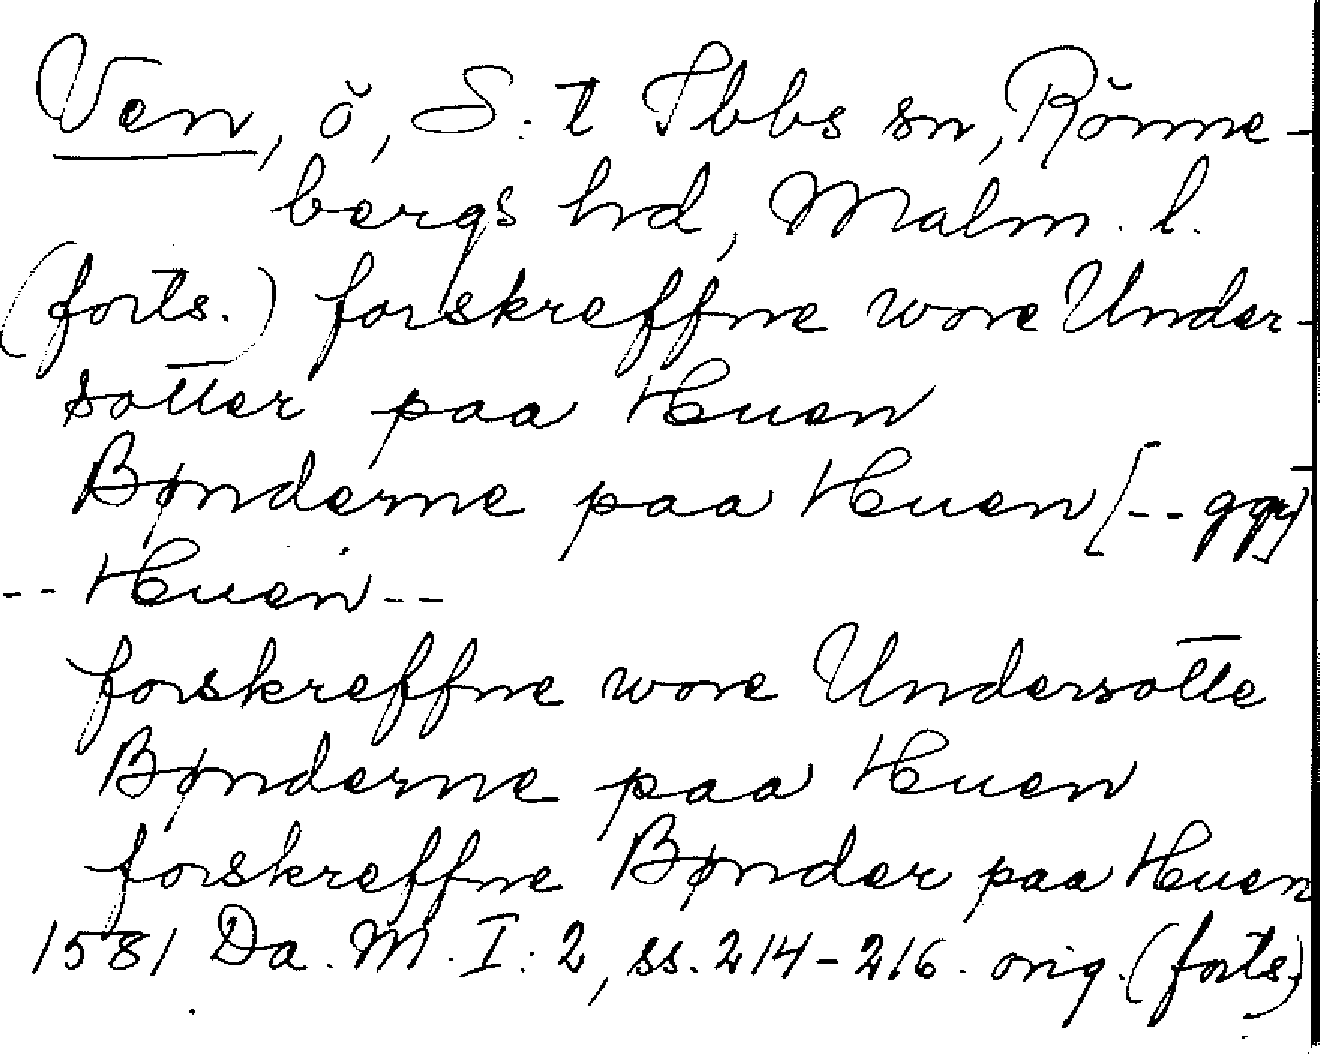 Ven, ö, S:t Ibbs sn, Rönne-
bergs hd, Malm. l.
(forts.) forskreffne wore Under-
sotter paa Huen
Bønderne paa Huen [-- ggr]
-- Huen --
forskreffne wore Undersotte
Bønderne paa Huen
forskreffne Bønder paa Huen
1581 Da. M. I:2, ss. 214-216. orig. (forts.)